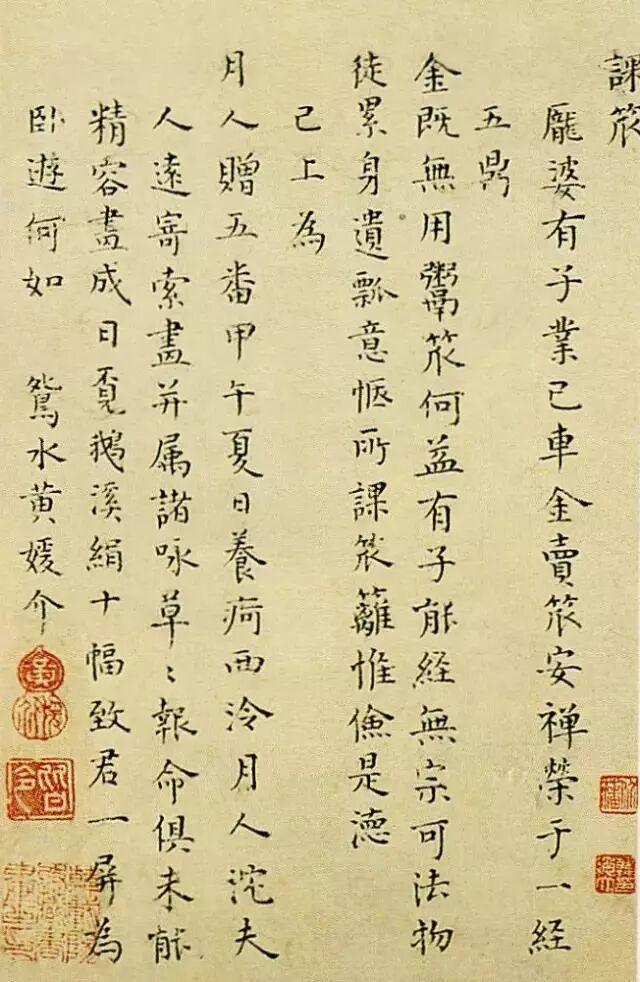 課笊
龐婆有子業已車金賣笊安禪榮于一經
五鼎
金既無用鬻笊何益有子能經無宗可法物
徒累身遺瓢意愜所課笊籬惟儉是德
已上為
月人贈五畨甲午夏日養疴西泠月人沱夫
人遠寄索畫并属諸咏草〻報命俱未能
精容畫成日覔鵝溪絹十幅致君一屏為
卧遊何如 鴛水黄媛介